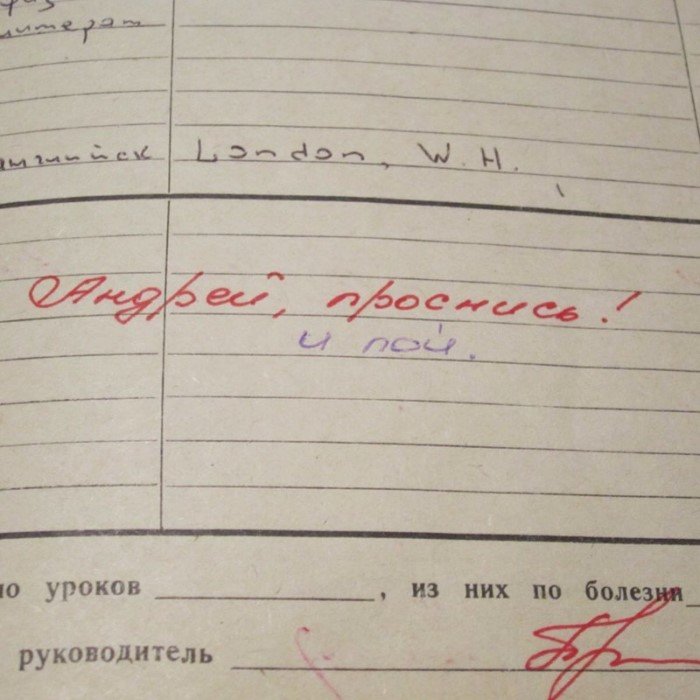 литерат
английск London, W. H.
Андрей, проснись!
и пой.
уроков , из них по болезни
руководитель